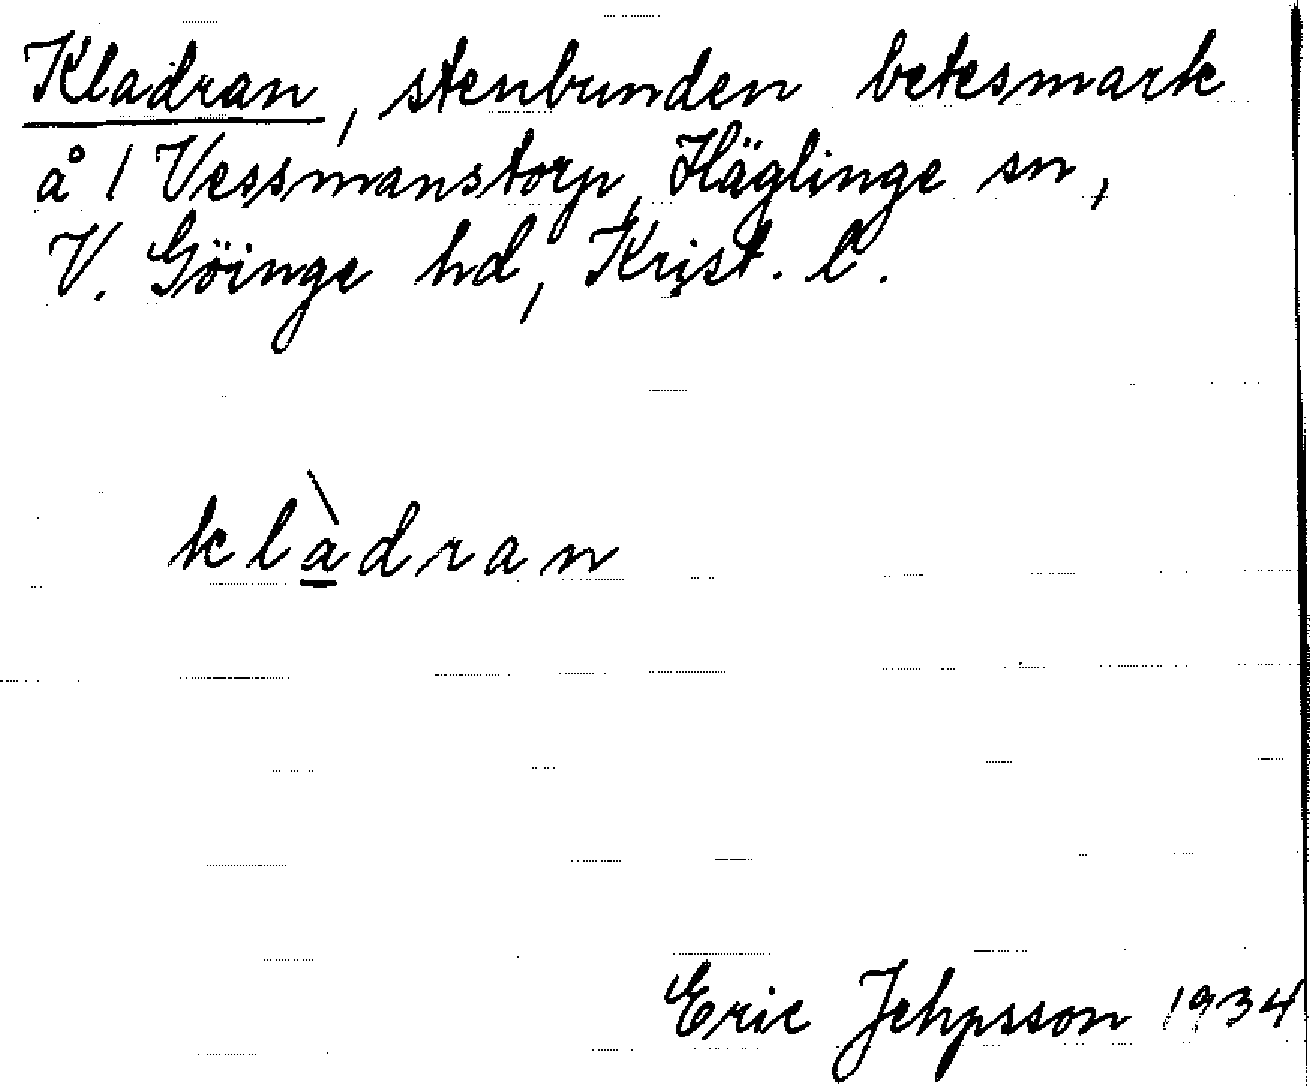 Kladran, stenbunden betesmark
å 1 Vessmanstorp, Häglinge sn,
V. Göinge hd, Krist. l.
klàdran
Eric Jehpsson 1934